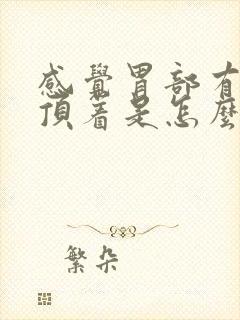 感覺胃部有
頂着是怎麼
繁朵